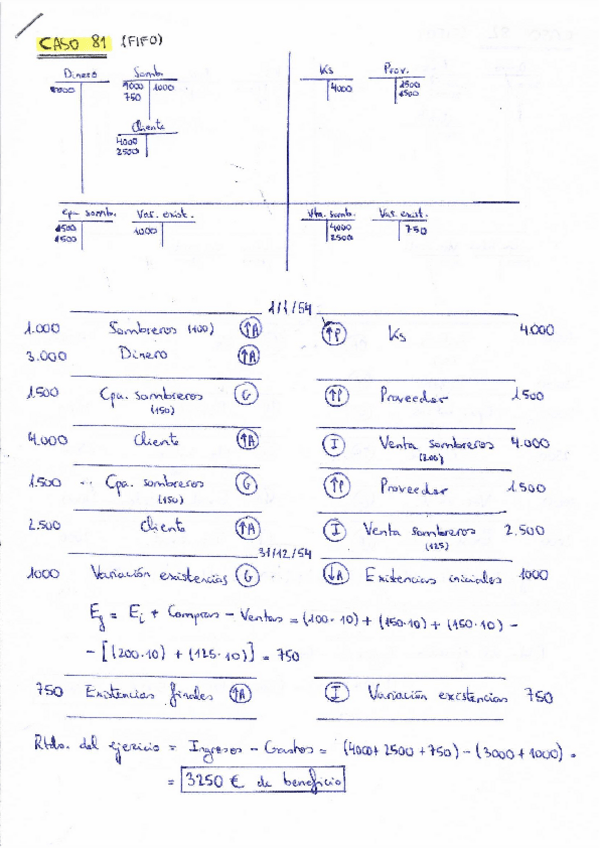 CASO 81 (FIFO)
Dinero Somb. Ks Prov.
3000 1000 1000 4000 1500
750 1500
Cliente
4000
2500
Cpa somb. Var. exist. Vta. somb. Var exist.
1500 1000 4000 750
1500 2500
1/1/54
1.000 Sombreros (100) ↑A ↑P Ks 4.000
3.000 Dinero ↑A
1.500 Cpa. sombreros G ↑P Proveedor 1500
(150)
4.000 Cliente ↑A I Venta sombreros 4.000
(200)
1.500 Cpa. sombreros G ↑P Proveedor 1.500
(150)
2.500 Cliente ↑A I Venta sombreros 2.500
(125)
31/12/54
1000 Variación existencias G ↓A Existencias iniciales 1000
Ef = Ei + Compras - Ventas = (100·10) + (150·10) + (150·10) -
- [(200·10) + (125·10)] = 750
750 Existencias finales ↑A I Variación existencias 750
Rtdo. del ejercicio = Ingresos - Gastos = (4000 + 2500 + 750) - (3000 + 1000) =
= 3250 € de beneficio